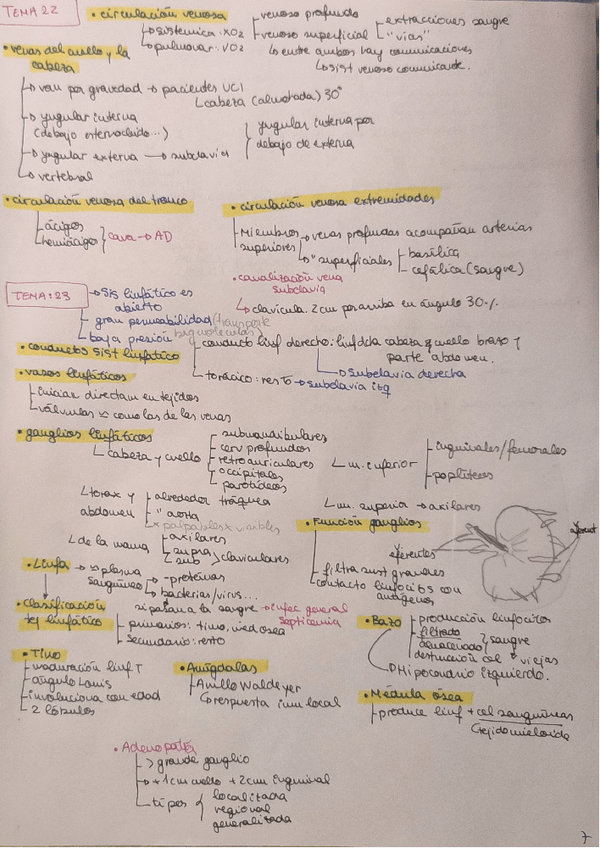 TEMA 22
• circulación venosa
sistemica: ↓O2
pulmonar: ↑O2
venoso profundo
venoso superficial
extracciones sangre
"vías"
entre ambos hay comunicaciones
sist venoso comunicante.
• venas del cuello y la cabeza
van por gravedad → pacientes UCI
cabeza (almohada) 30°
yugular interna
(debajo esternocleido...)
yugular externa → subclavia
vertebral
yugular interna por
debajo de externa
• circulación venosa del tronco
ácigos
hemiácigos
cava → AD
• circulación venosa extremidades
Miembros
superiores
venas profundas acompañan arterias
" superficiales
basílica
cefálica (sangre)
• canalización vena
subclavia
clavícula. 2cm por arriba en ángulo 30.%.
TEMA: 23
Sis linfático es
abierto
gran permeabilidad (transporte
macromoléculas)
baja presión
• conductos sist linfático
conducto linf derecho: linf dcha cabeza y cuello brazo y
parte abdomen.
subclavia derecha
torácico: resto → subclavia izq
• vasos linfáticos
inician directam en tejidos
válvulas ≈ como las de las venas
• ganglios linfáticos
cabeza y cuello
submandibulares
cerv profundos
retroauriculares
occipitales
parotídeos
m. inferior
inguinales/femorales
poplíteos
tórax y
abdomen
alrededor tráquea
" aorta
x palpables x visibles
m. superior → axilares
de la mama
axilares
supra
sub
claviculares
• Función ganglios
filtra sust grandes
contacto linfocitos con
antígenos
eferentes
aferent
• Linfa → ≈ plasma
sanguíneo
- proteínas
bacterias/virus...
si pasan a la sangre → infec general
septicemia
• Clasificación
tej linfático
primarios: timo, med osea
secundario: resto
• Bazo
producción linfocitos
filtrado
almacenado
sangre
destrucción cel viejas
Hipocondrio izquierdo.
• Timo
maduración linf T
ángulo Louis
involuciona con edad
2 lóbulos
• Amígdalas
Anillo Waldeyer
respuesta inm local
• Médula ósea
produce linf + cel sanguíneas
(tejido mieloide)
• Adenopatía
> grande ganglio
+1cm cuello +2cm inguinal
tipos
localizada
regional
generalizada
7